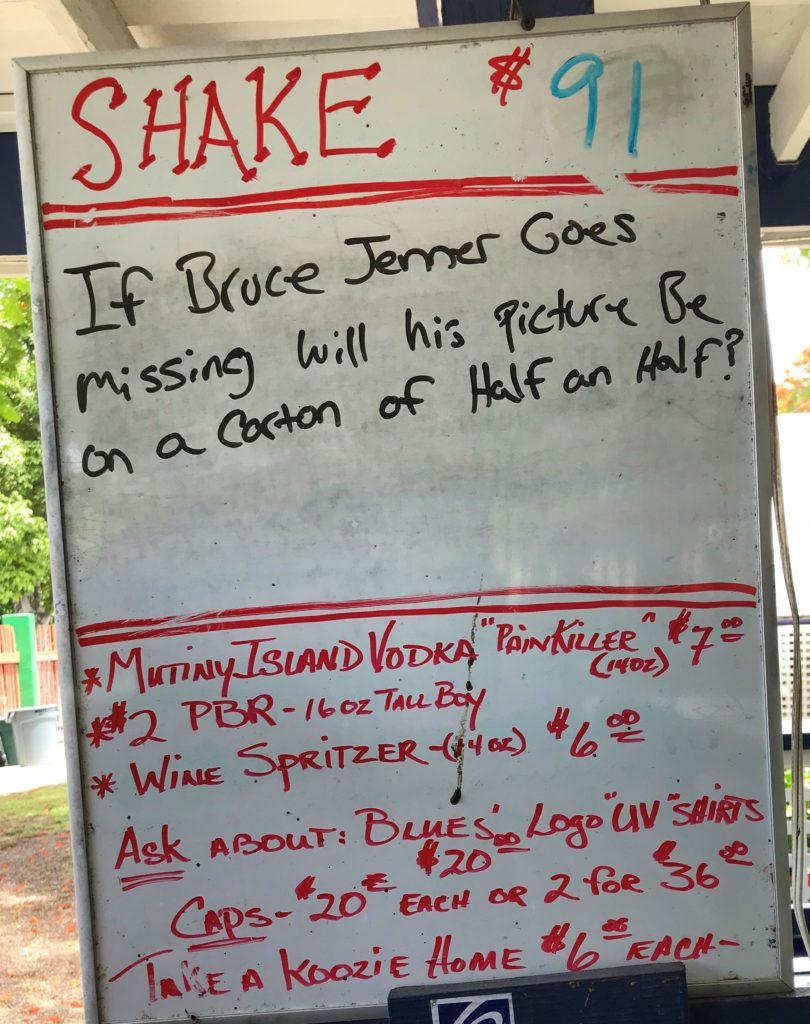 SHAKE $91
If Bruce Jenner Goes
missing will his Picture Be
on a Carton of Half an Half?
*MUTINY ISLAND VODKA "PAINKILLER" $7 00
(14OZ)
*$2 PBR - 16 OZ TALL BOY
* WINE SPRITZER - (14 OZ) $6 00
ASK ABOUT: BLUES' LOGO "UV" SHIRTS
$20 00
CAPS - $20 00 EACH OR 2 FOR $36 00
TAKE A KOOZIE HOME $6 00 EACH -